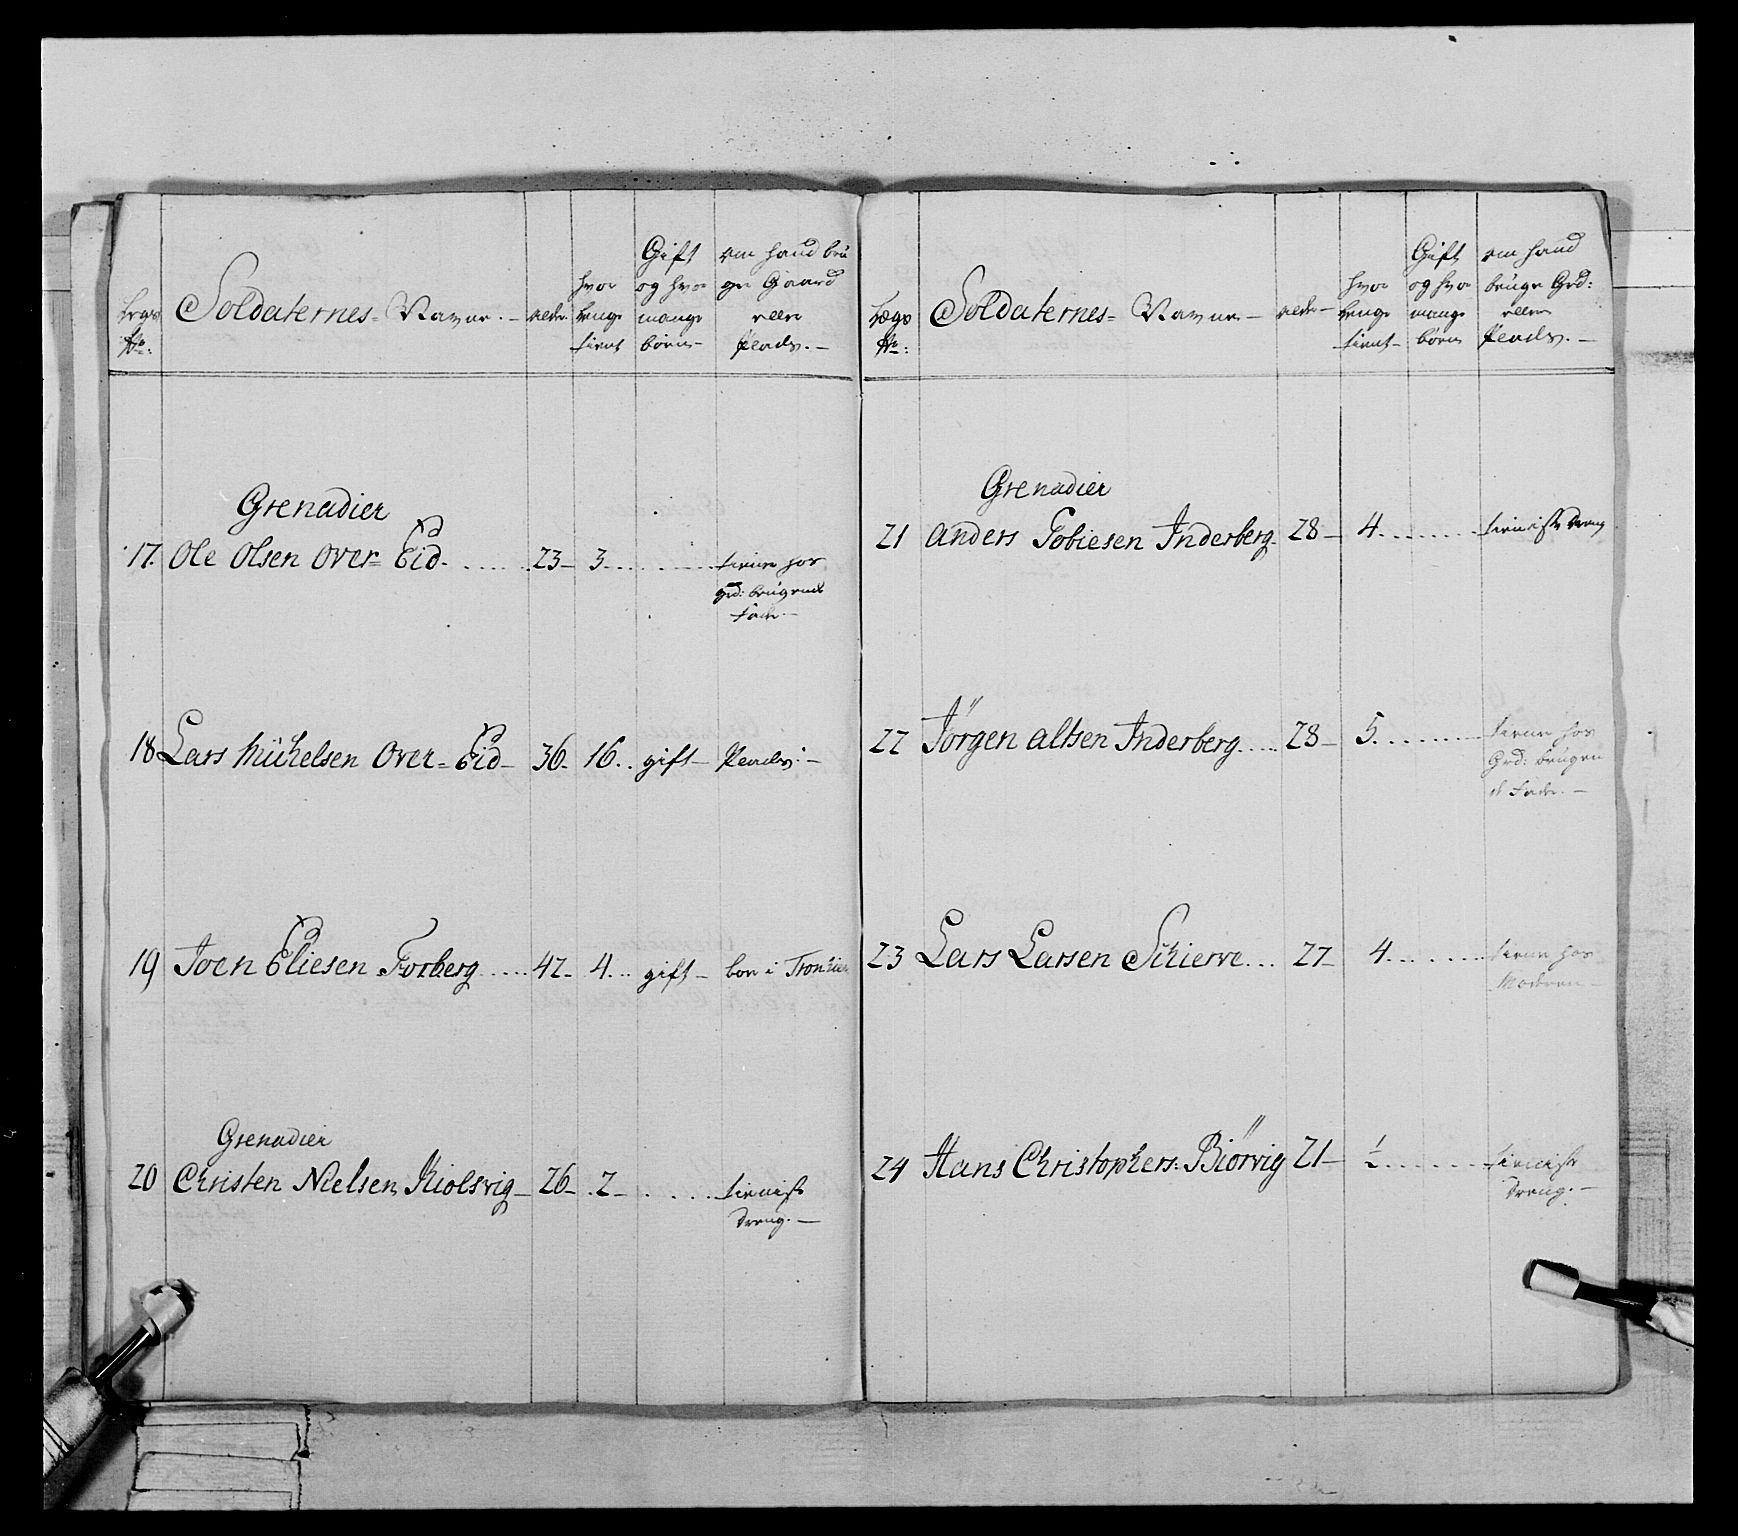 Legds No:
Soldaternes= Navne.
alder
hvor lenge tient
Gift og hvor mange børn
om hand bruger Gaard eller Plads.
Grenadier
17. Ole Olsen Over= Eid. 23 3 tiener hos grd: brugende Fader
18 Lars Michelsen Over= Eid 36 16 gift Plads.
19 Joen Eliesen Forberg 42 4 gift boer i Tronhiem
Grenadier
20 Christen Nielsen Kiolsvig 26 2 tieniste dreng.
Lægs No:
Soldaternes= Navne
alder
hvor lenge tient
Gift og hvor mange børn
om hand bruger Grd: eller Plads.
Grenadier
21 Anders Tobiesen Inderberg 28 4 tieniste dreng
22 Jörgen Altsen Inderberg 28 5 tiener hos Grd: brugende Fader.
23 Lars Larsen Schierve 27 4 tiener hos Moderen
24 Hans Christophers: Biörvig 21 ½ tieniste dreng.